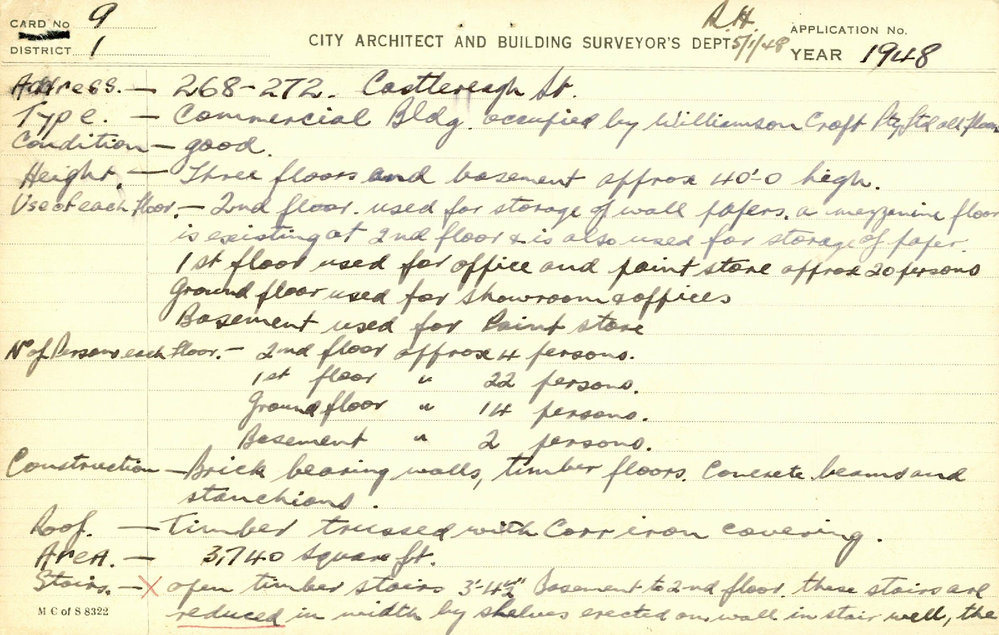 CARD No 9
R.H.
APPLICATION No.
DISTRICT 1
CITY ARCHITECT AND BUILDING SURVEYOR'S DEPT 5/1/48
YEAR 1948
Address. - 268-272. Castlereagh St.
Type. - Commercial Bldg. occupied by Williamson Croft Pty Ltd all floors
Condition - good.
Height. - Three floors and basement approx 40'.0 high.
Use of each floor. - 2nd floor. used for storage of wall papers. a mezzanine floor
is existing at 2nd floor & is also used for storage of paper.
1st floor used for office and paint store approx 20 persons
Ground floor used for showroom & offices
Basement used for Paint store
No of Persons each floor. - 2nd floor approx 4 persons.
1st floor " 22 persons.
Ground floor " 14 persons.
Basement " 2 persons.
Construction - Brick bearing walls, timber floors. Concrete beams and
stanchions.
Roof. - Timber trussed with Corr iron covering.
Area. - 3,740 square ft.
Stairs. - X open timber stairs 3'-4½" Basement to 2nd floor. these stairs are
reduced in width by shelves erected on wall in stair well, the
M C of S 8322